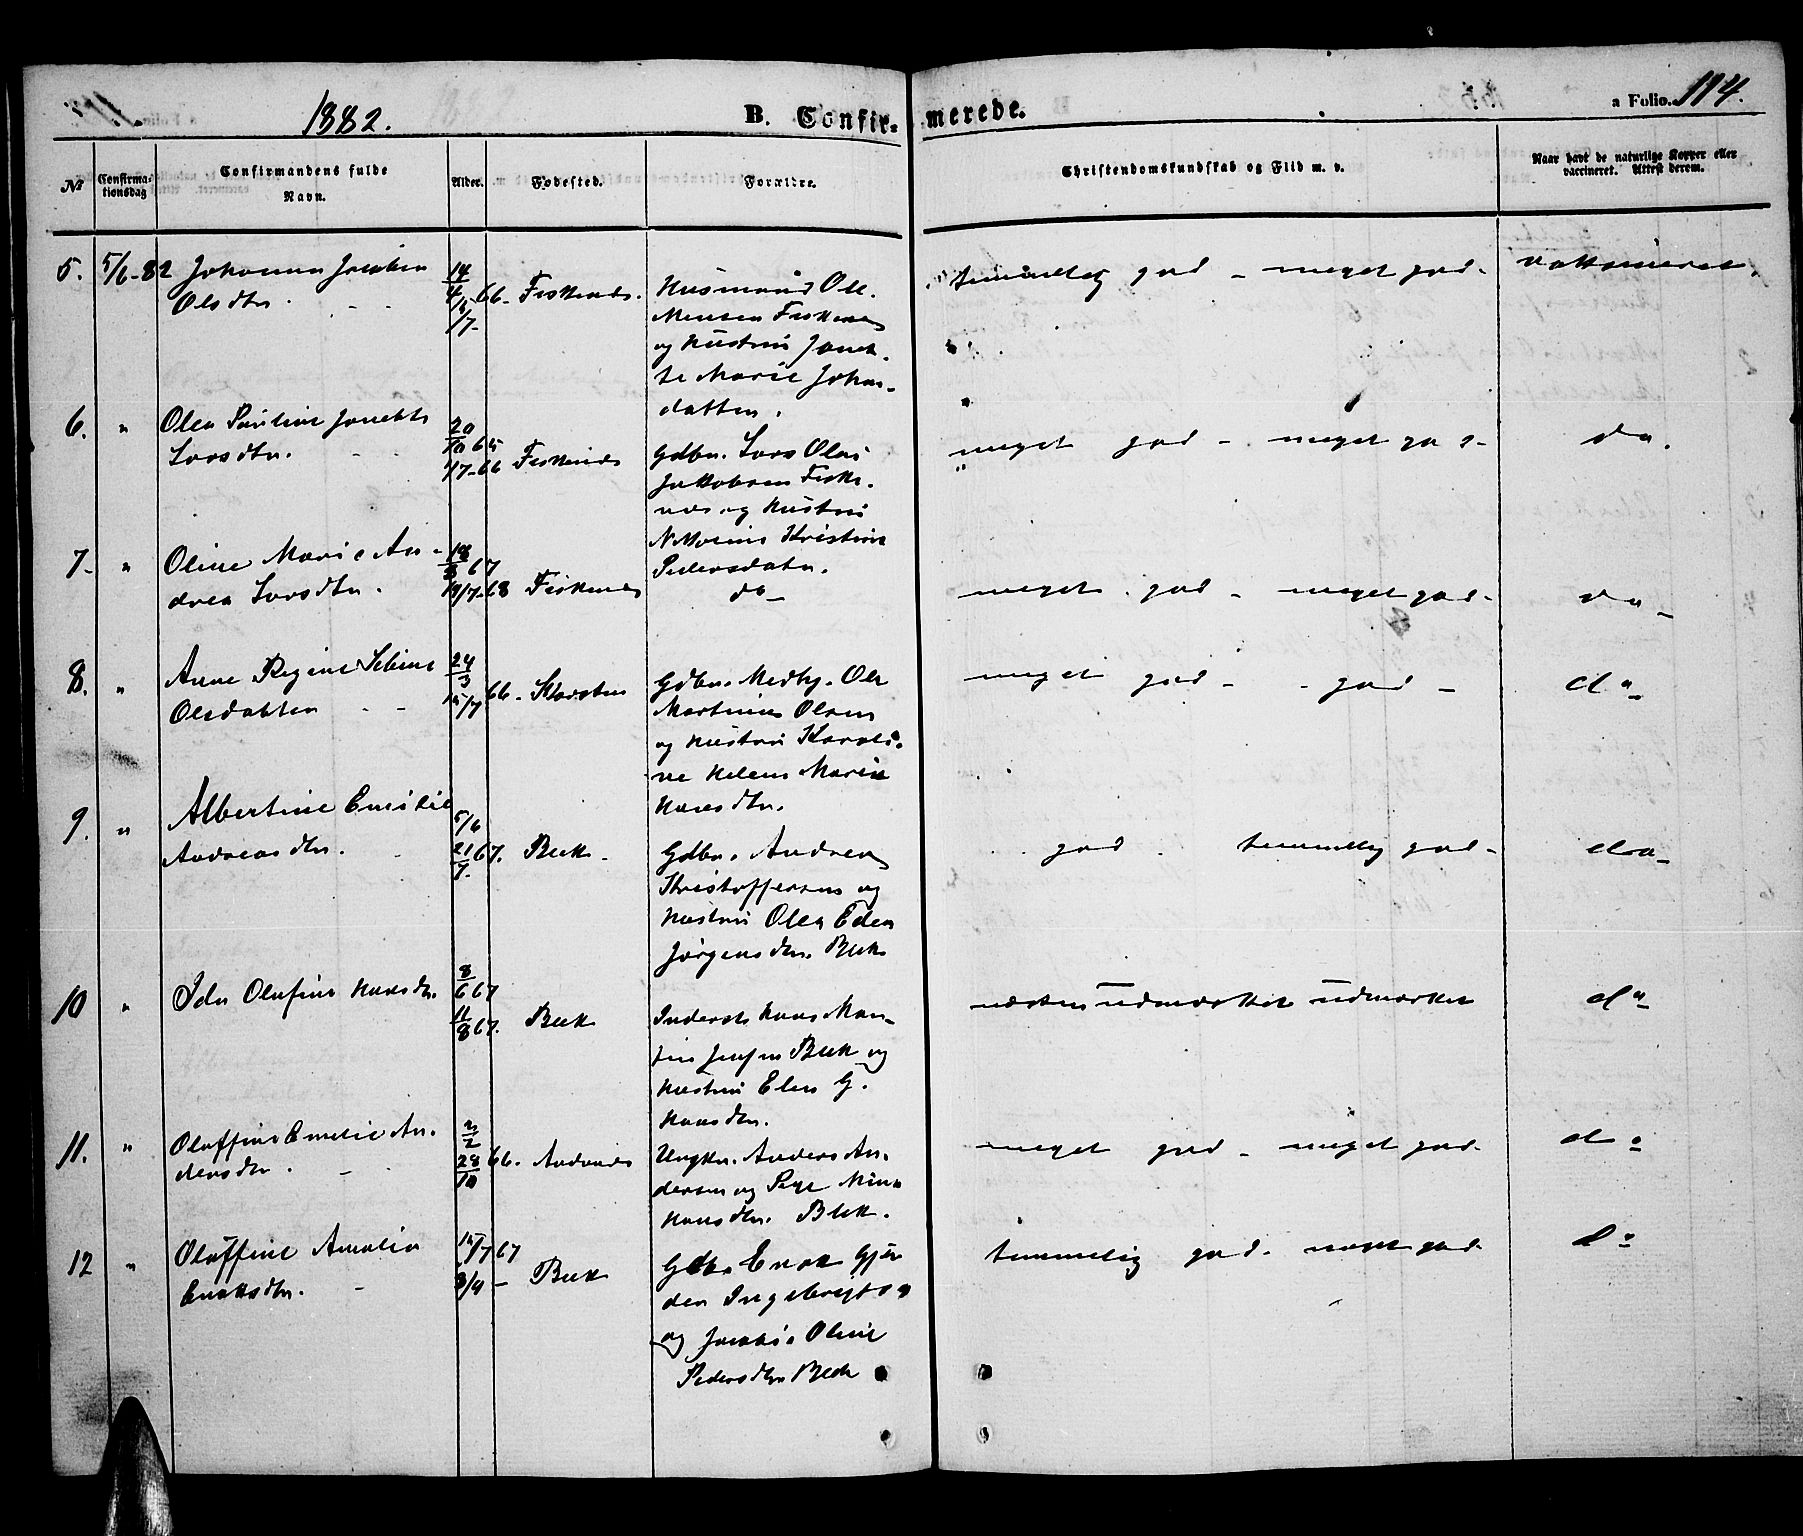 1882.
B. Confirmerede.
a Folio. 114.
№
Confirmationsdag
Confirmandens fulde Navn.
Alder.
Fødested.
Forældre.
Christendomskundskab og Flid m. v.
Naar havt de naturlige Kopper eller vaccineret. Attest derom.
5. 5/6-82 Johanna Jacobin 14
Olsdtr. 66. Fiskenes. Husmand Ole
Mensen Fiskenes
og Hustru Janet-
te Marie Johan-
datter.
temmelig god - meget god - vakcineret
6. " Olea Pauline Janette 20/10 65
Larsdtr. 1/7-66 Fiskenes Gdbr. Lars Olai
Jakobsen Fiske-
nes og Hustru
N. Marine Kristine
Pedersdatr.
meget god - meget god - da.
7. " Oline Marie An- 18/3 67
drea Larsdtr. 19/7-68 Fiskenes do -
meget god - meget god - da -
8. " Anne Regine Seline 24/3
Olsdatter 15/7 66. Skarsten Gdbr. Medhj. Ole
Martinus Olsen
og Hustru Karoli-
ne Helene Marie
Hansdtr.
meget god - god - da
9. " Albertine Emilie 5/6
Andreasdtr. 21/7 67. Bek - Gdbr. Andreas
Kristoffersen og
Hustru Olea Edea
Jørgensdtr. Bek
god. temmelig god - da -
10 " Ida Olufine Hansdtr. 8/6 67
11/8 67. Bek Inderst Hans Mar-
tin Jensen Bek og
Hustru Elen G.
Hansdtr.
næsten udmærket udmærket da
11. " Oluffine Emelie An- 2/2
dersdtr. 28/10 66. Andenes Ungkr. Anders An-
dersen og Pige Mina
Hansdtr. Bek.
meget god - meget god. do
12 " Oluffine Amalia 15/7 67
Enoksdtr. 8/9 - Bek Gdbr. Enok Gjær
den Ingebrigtsen
og Jakobia Oline
Pedersdtr Bek
temmelig god. meget god. do